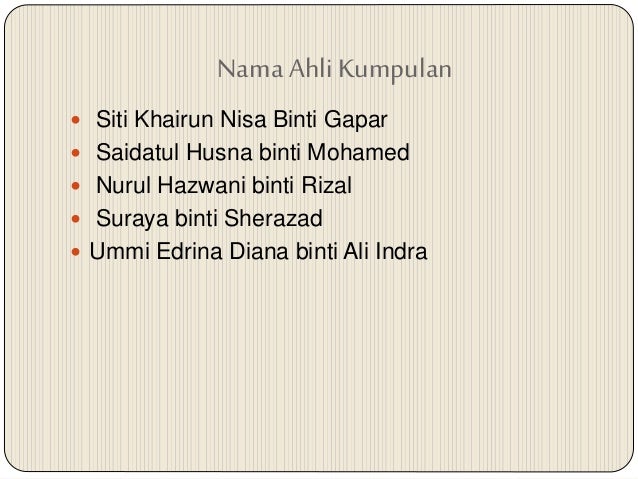 Nama Ahli Kumpulan
Siti Khairun Nisa Binti Gapar
Saidatul Husna binti Mohamed
Nurul Hazwani binti Rizal
Suraya binti Sherazad
Ummi Edrina Diana binti Ali Indra